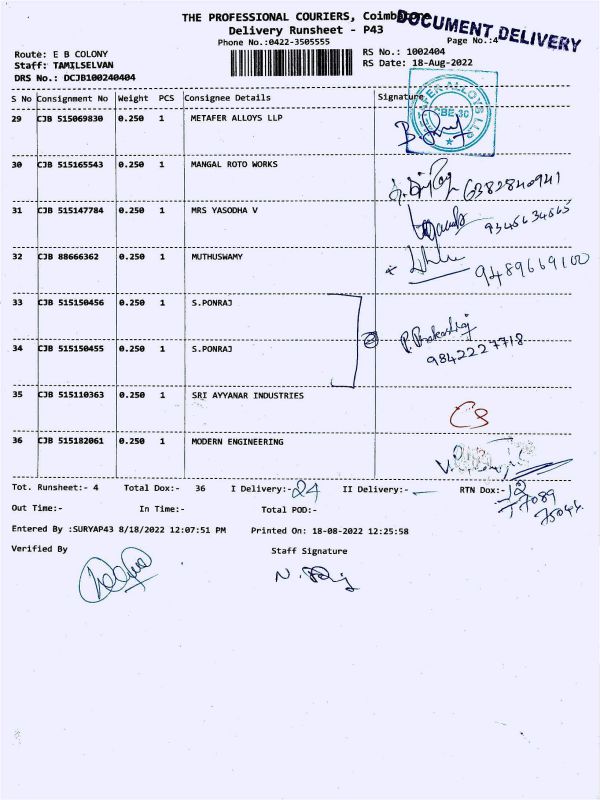 THE PROFESSIONAL COURIERS, Coimbatore
DOCUMENT DELIVERY
Delivery Runsheet - P43
Phone No.:0422-3505555
Page No.:4
Route: E B COLONY
RS No.: 1002404
Staff: TAMILSELVAN
RS Date: 18-Aug-2022
DRS No.: DCJB100240404
S No Consignment No Weight PCS Consignee Details Signature
29 CJB 515069830 0.250 1 METAFER ALLOYS LLP
CBE-30
30 CJB 515165543 0.250 1 MANGAL ROTO WORKS
6382840941
31 CJB 515147784 0.250 1 MRS YASODHA V
9345634665
32 CJB 88666362 0.250 1 MUTHUSWAMY
9489669100
33 CJB 515150456 0.250 1 S.PONRAJ
34 CJB 515150455 0.250 1 S.PONRAJ
9842227718
35 CJB 515110363 0.250 1 SRI AYYANAR INDUSTRIES
CS
36 CJB 515182061 0.250 1 MODERN ENGINEERING
Tot. Runsheet:- 4 Total Dox:- 36 I Delivery:- 24 II Delivery:- — RTN Dox:- 12
77089
75044
Out Time:- In Time:- Total POD:-
Entered By :SURYAP43 8/18/2022 12:07:51 PM Printed On: 18-08-2022 12:25:58
Verified By Staff Signature